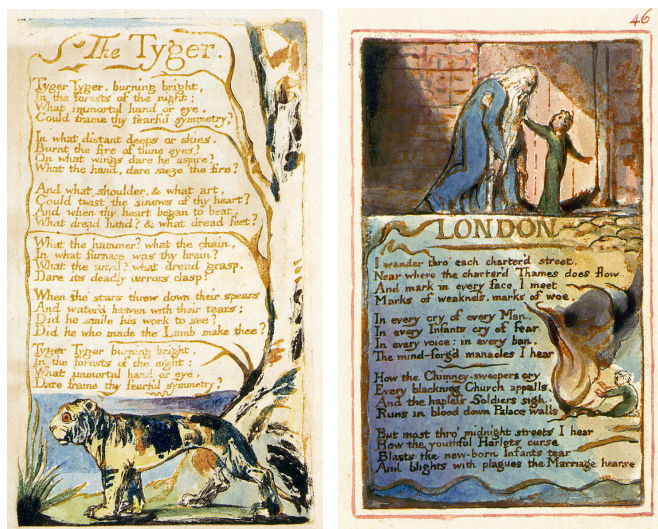 The Tyger.
Tyger Tyger, burning bright,
In the forests of the night;
What immortal hand or eye,
Could frame thy fearful symmetry?
In what distant deeps or skies,
Burnt the fire of thine eyes?
On what wings dare he aspire?
What the hand, dare sieze the fire?
And what shoulder, & what art,
Could twist the sinews of thy heart?
And when thy heart began to beat,
What dread hand? & what dread feet?
What the hammer? what the chain,
In what furnace was thy brain?
What the anvil? what dread grasp,
Dare its deadly terrors clasp?
When the stars threw down their spears
And water'd heaven with their tears:
Did he smile his work to see?
Did he who made the Lamb make thee?
Tyger Tyger burning bright,
In the forests of the night:
What immortal hand or eye,
Dare frame thy fearful symmetry?
46
LONDON
I wander thro' each charter'd street,
Near where the charter'd Thames does flow
And mark in every face I meet
Marks of weakness, marks of woe.
In every cry of every Man,
In every Infants cry of fear
In every voice; in every ban,
The mind-forg'd manacles I hear
How the Chimney-sweepers cry
Every blackning Church appalls,
And the hapless Soldiers sigh
Runs in blood down Palace walls
But most thro' midnight streets I hear
How the youthful Harlots curse
Blasts the new-born Infants tear
And blights with plagues the Marriage hearse